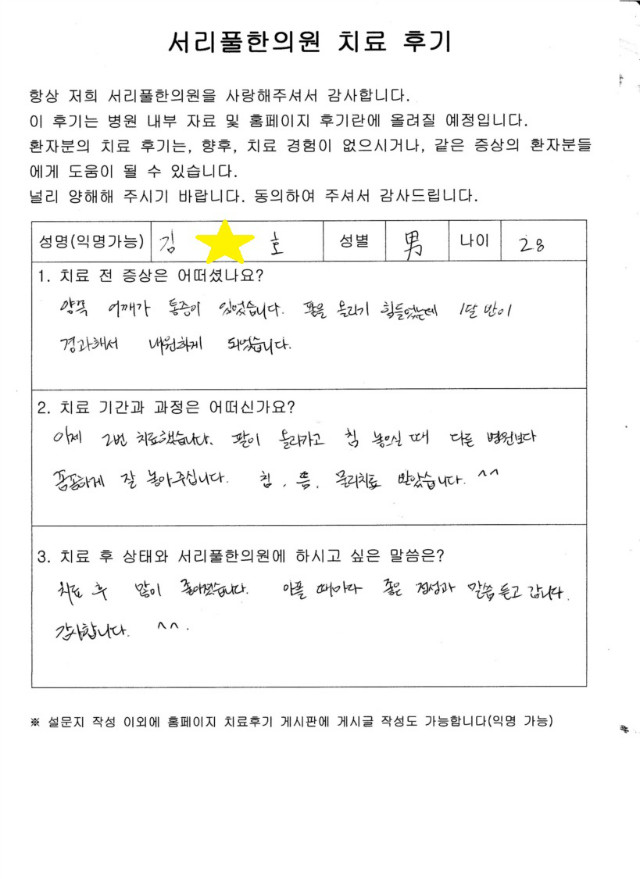 서리풀한의원 치료 후기
항상 저희 서리풀한의원을 사랑해주셔서 감사합니다.
이 후기는 병원 내부 자료 및 홈페이지 후기란에 올려질 예정입니다.
환자분의 치료 후기는, 향후, 치료 경험이 없으시거나, 같은 증상의 환자분들
에게 도움이 될 수 있습니다.
널리 양해해 주시기 바랍니다. 동의하여 주셔서 감사드립니다.
성명(익명가능) 김 호 성별 男 나이 28
1. 치료 전 증상은 어떠셨나요?
양쪽 어깨가 통증이 있었습니다. 팔을 올리기 힘들었는데 1달 반이
경과해서 내원하게 되었습니다.
2. 치료 기간과 과정은 어떠신가요?
이제 2번 치료했습니다. 팔이 올라가고 침 놓으실 때 다른 병원보다
꼼꼼하게 잘 놓아주십니다. 침, 뜸, 물리치료 받았습니다. ^^
3. 치료 후 상태와 서리풀한의원에 하시고 싶은 말씀은?
치료 후 많이 좋아졌습니다. 아플 때마다 좋은 정성과 말씀 듣고 갑니다.
감사합니다. ^^.
※ 설문지 작성 이외에 홈페이지 치료후기 게시판에 게시글 작성도 가능합니다(익명 가능)